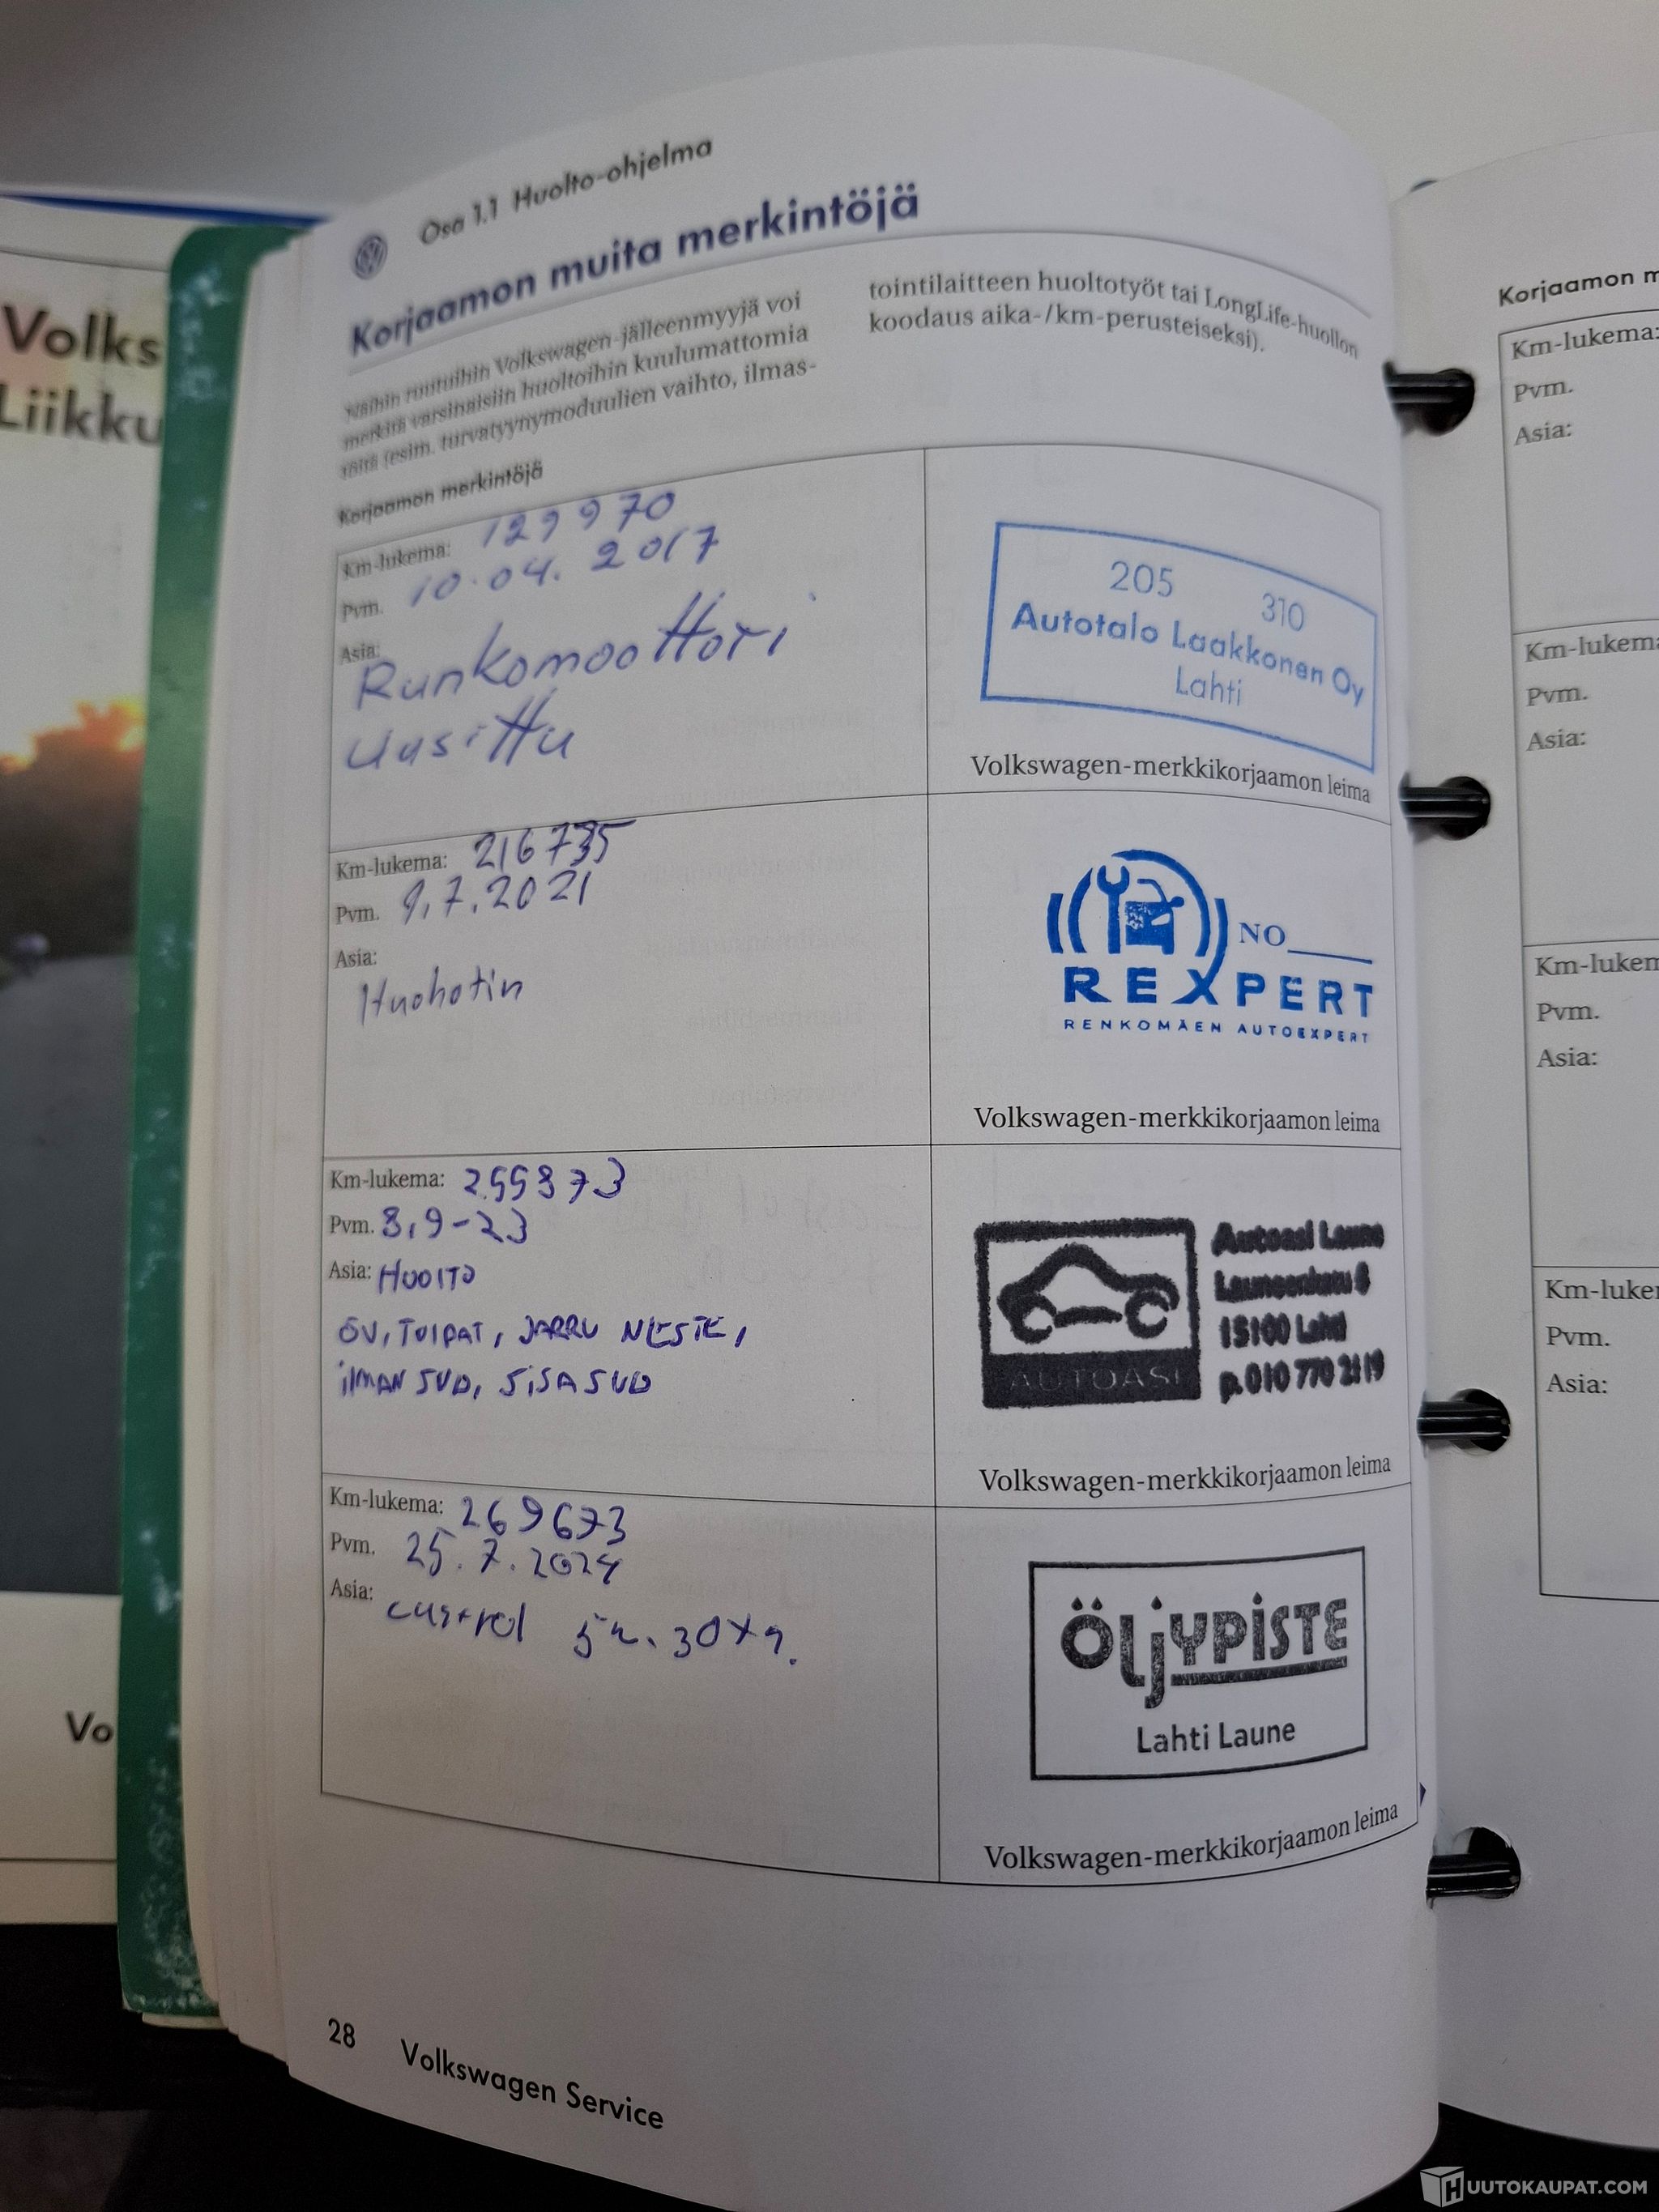 Volks
Liikku
Vo
Osa 1.1 Huolto-ohjelma
Korjaamon muita merkintöjä
Näihin ruutuihin Volkswagen-jälleenmyyjä voi
merkitä varsinaisiin huoltoihin kuulumattomia
töitä (esim. turvatyynymoduulien vaihto, ilmas-
tointilaitteen huoltotyöt tai LongLife-huollon
koodaus aika-/km-perusteiseksi).
Korjaamon merkintöjä
Km-lukema: 129970
Pvm. 10.04.2017
Asia:
Runkomoottori
uusittu
205 310
Autotalo Laakkonen Oy
Lahti
Volkswagen-merkkikorjaamon leima
Km-lukema: 216735
Pvm. 9.7.2021
Asia:
NO
REXPERT
RENKOMÄEN AUTOEXPERT
Volkswagen-merkkikorjaamon leima
Km-lukema: 255873
Pvm. 8,9-23
Asia: HUOLTO
ÖV, TULPAT, JARRU NESTE,
ILMAN SUD, SISA SUD
AUTOASI
Autoasi Laune
Launeenkatu
15100 Lahti
p. 010 770 2119
Volkswagen-merkkikorjaamon leima
Km-lukema: 269673
Pvm. 25.7.2024
Asia:
castrol
ÖLJYPISTE
Lahti Laune
Volkswagen-merkkikorjaamon leima
28 Volkswagen Service
Korjaamon m
Km-lukema:
Pvm.
Asia:
Km-lukema
Pvm.
Asia:
Km-lukem
Pvm.
Asia:
Km-luke
Pvm.
Asia:
HUUTOKAUPAT.COM